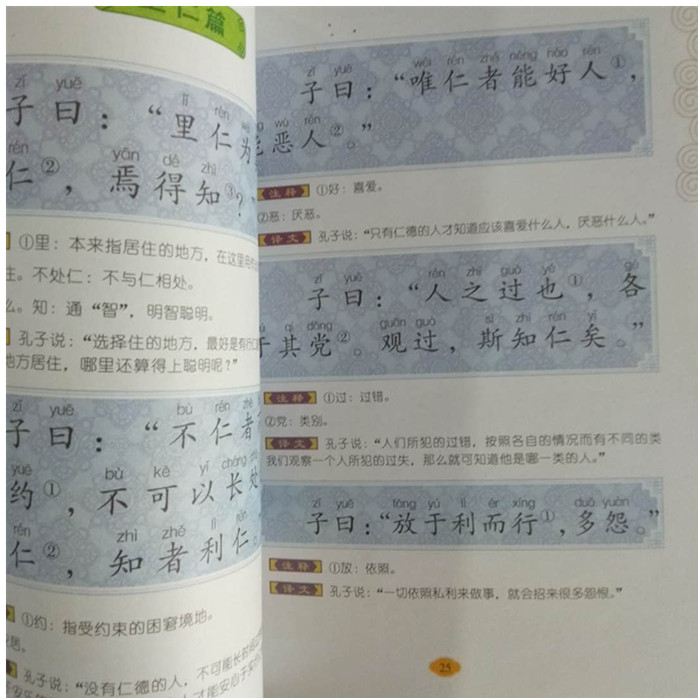 里仁篇
zǐ yuē lǐ rén
子曰：“里仁为
rén yān dé zhì
仁②，焉得知③？”
①里：本来指居住的地方，在这里用作
住。不处仁：不与仁相处。
么。知：通“智”，明智聪明。
孔子说：“选择住的地方，最好是有行
地方居住，哪里还算得上聪明呢？”
zǐ yuē bù rén zhě
子曰：“不仁者
yuē bù kě yǐ cháng chǔ
约①，不可以长处
rén zhì zhě lì rén
仁②，知者利仁。
①约：指受约束的困窘境地。
安居。
孔子说：“没有仁德的人，不可能长
才能安心于
zǐ yuē wéi rén zhě néng hào rén
子曰：“唯仁者能好人①，
néng wù rén
能恶人②。”
注释 ①好：喜爱。
②恶：厌恶。
译文 孔子说：“只有仁德的人才知道应该喜爱什么人，厌恶什么人。”
zǐ yuē rén zhī guò yě gè
子曰：“人之过也①，各
yú qí dǎng guān guò sī zhī rén yǐ
于其党②。观过，斯知仁矣。”
注释 ①过：过错。
②党：类别。
译文 孔子说：“人们所犯的过错，按照各自的情况而有不同的类
我们观察一个人所犯的过失，那么就可知道他是哪一类的人。”
zǐ yuē fàng yú lì ér xíng duō yuàn
子曰：“放于利而行①，多怨。”
注释 ①放：依照。
译文 孔子说：“一切依照私利来做事，就会招来很多怨恨。”
25